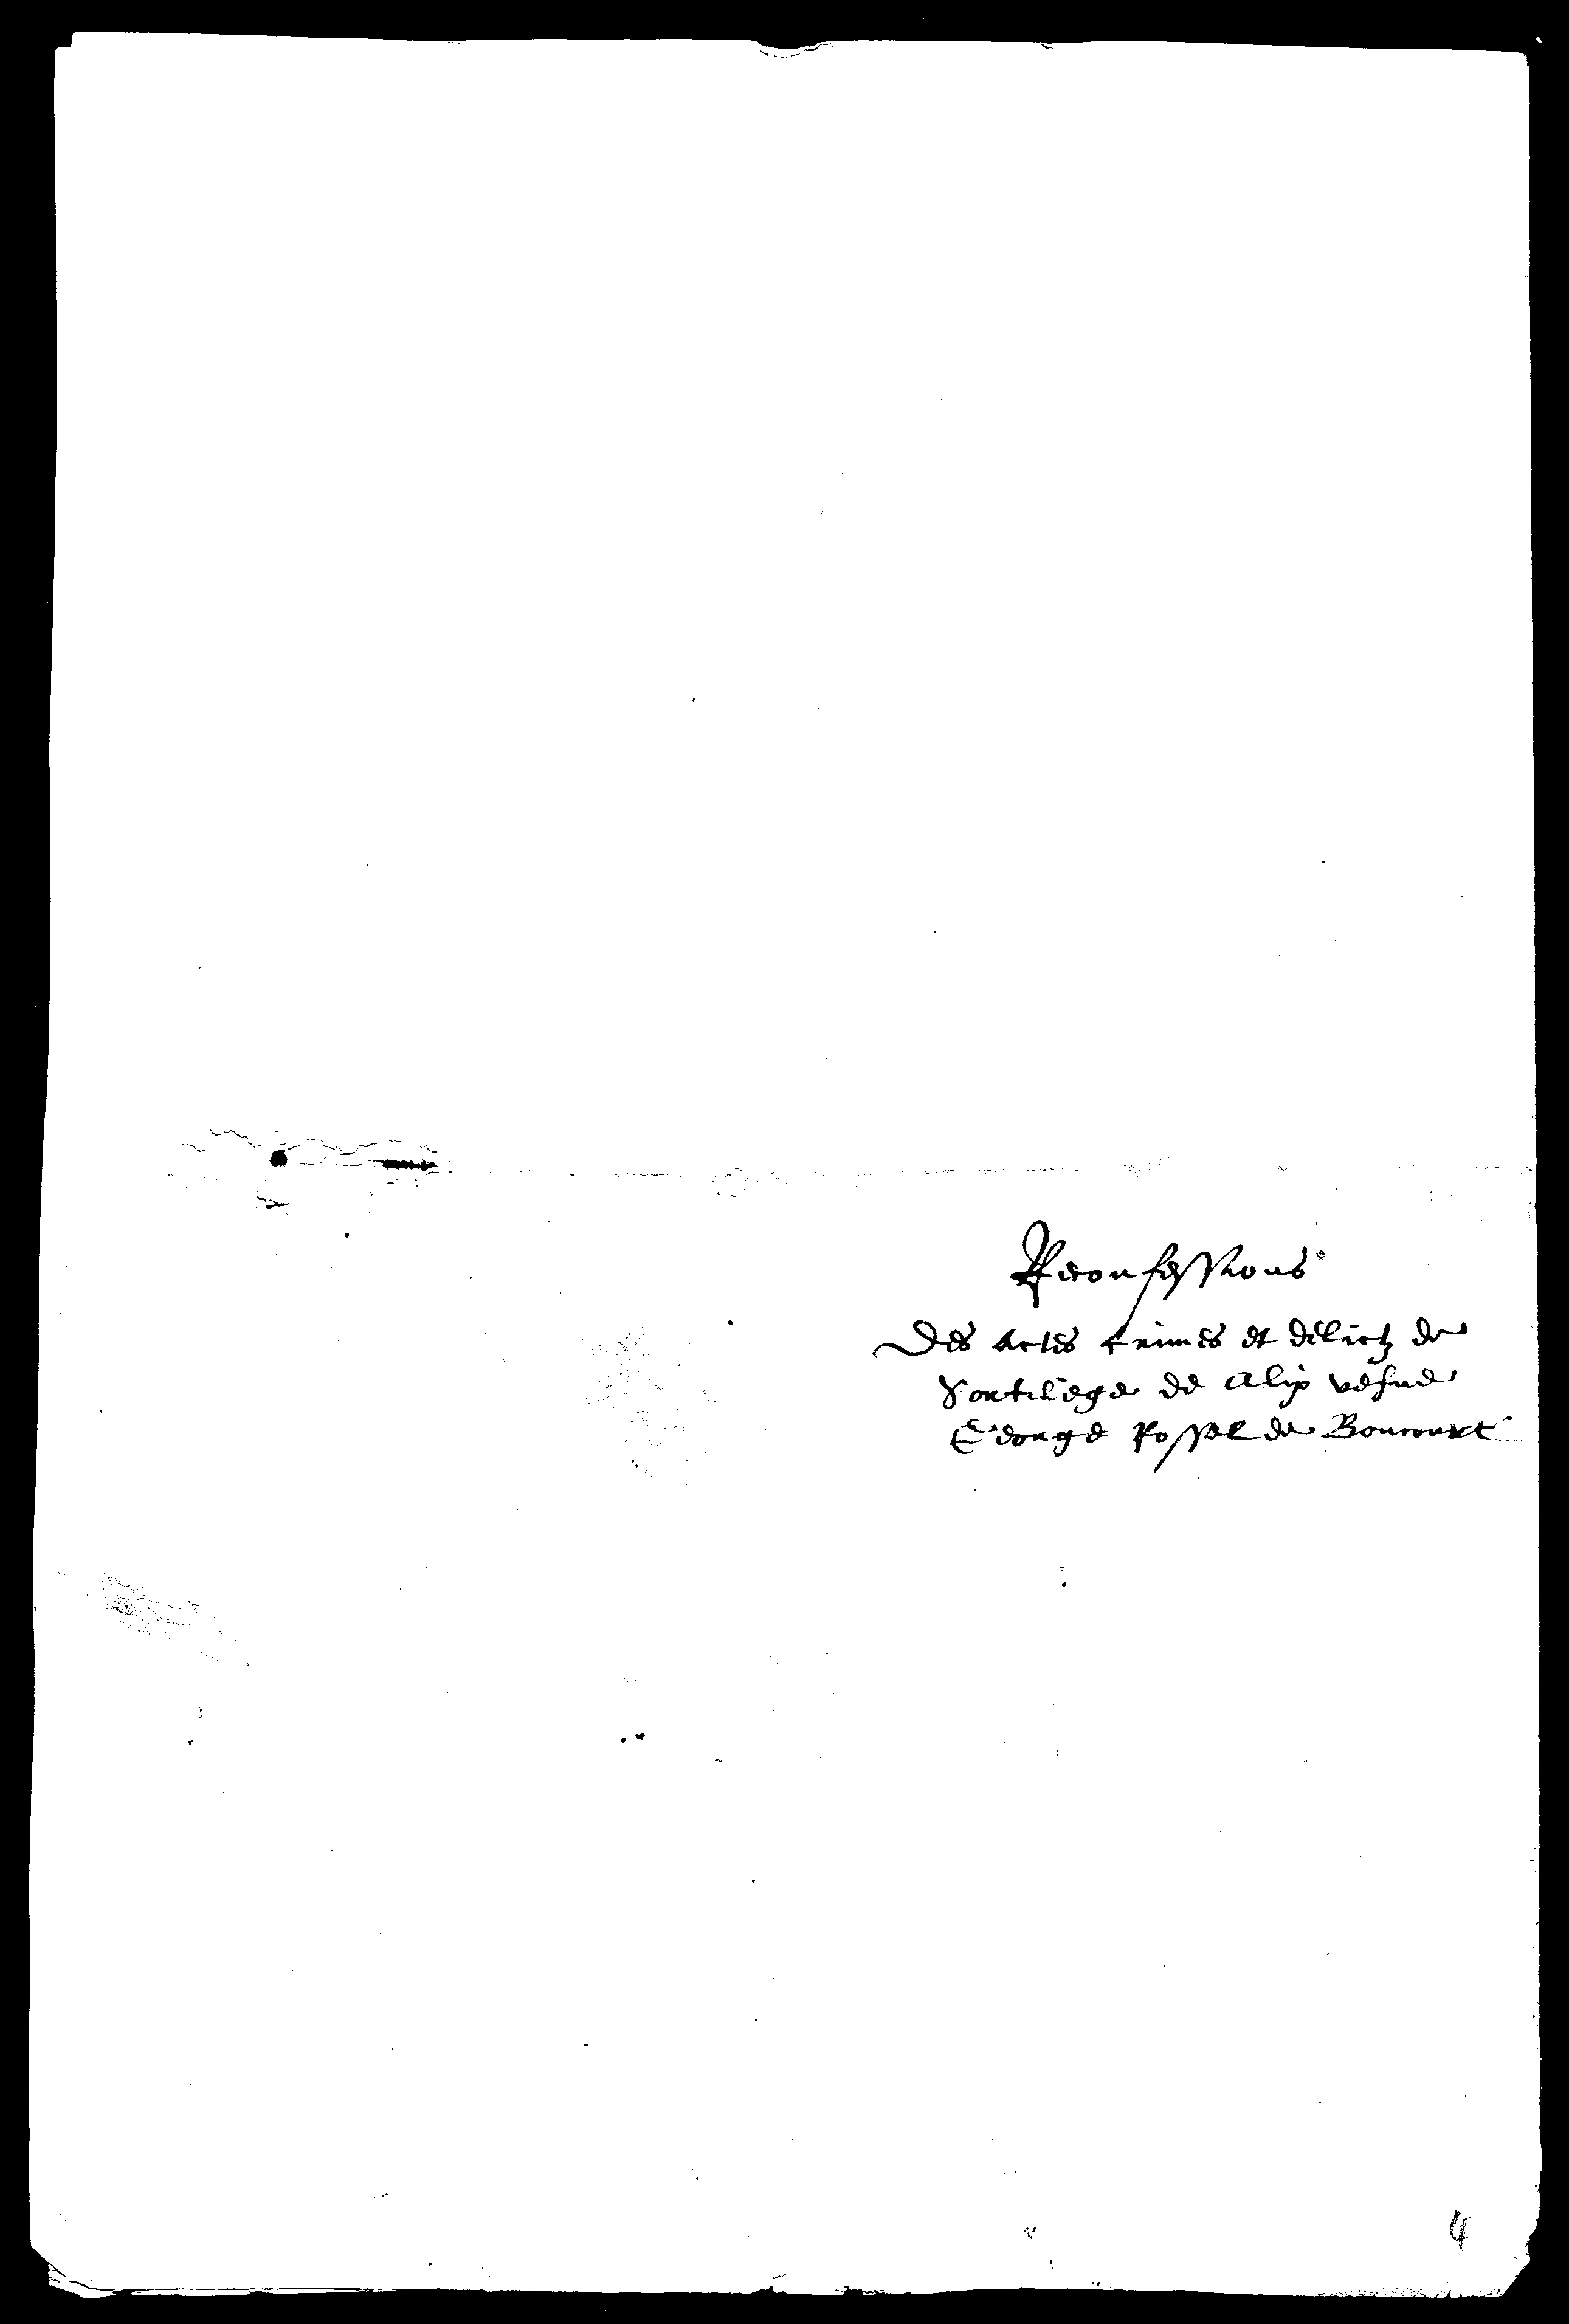 Reconfessions
Des actes crimes et delictz de
Sortilege de Alix vefue
George Rossel de Boncourt
4